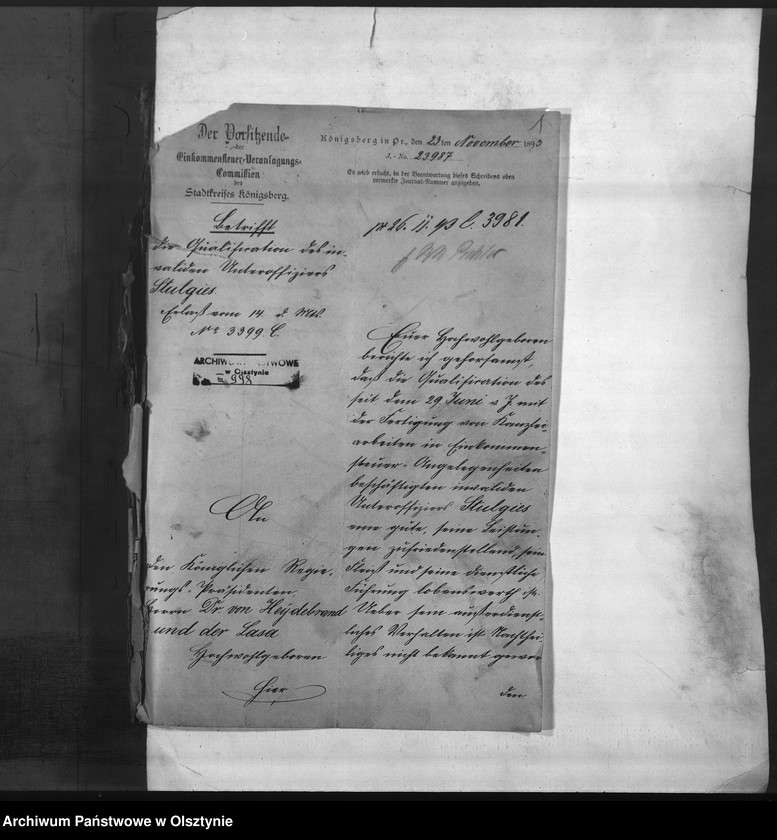 1
Der Vorsitzende
der
Einkommensteuer-Veranlagungs-
Commission
des
Stadtkreises Königsberg.
Königsberg in Pr., den 23ten November 1893
J.-No. 23987
Es wird ersucht, in der Beantwortung dieses Schreibens oben
vermerkte Journal-Nummer anzugeben.
Betrifft
die Qualification des in-
validen Unteroffiziers
Stulgies
Erlaß vom 14 d. Mts.
No 3399. C.
pr 26. 11. 93 C. 3981.
ARCHIWUM PAŃSTWOWE
w Olsztynie
998
An
den Königlichen Regie-
rungs-Präsidenten
Herrn Dr. von Heydebrand
und der Lasa
Hochwohlgeboren
hier
Euer Hochwohlgeboren
berichte ich gehorsamst,
daß die Qualification des
seit dem 29 Juni v. J. mit
der Fertigung von Kanzlei-
arbeiten in Einkommen-
steuer-Angelegenheiten
beschäftigten invaliden
Unteroffiziers Stulgies
eine gute, seine Leistun-
gen zufriedenstellend, sein
Fleiß und seine dienstliche
Führung lobenswerth ist.
Ueber sein außerdienst-
liches Verhalten ist Nachthei-
liges nicht bekannt gewor
den
Archiwum Państwowe w Olsztynie